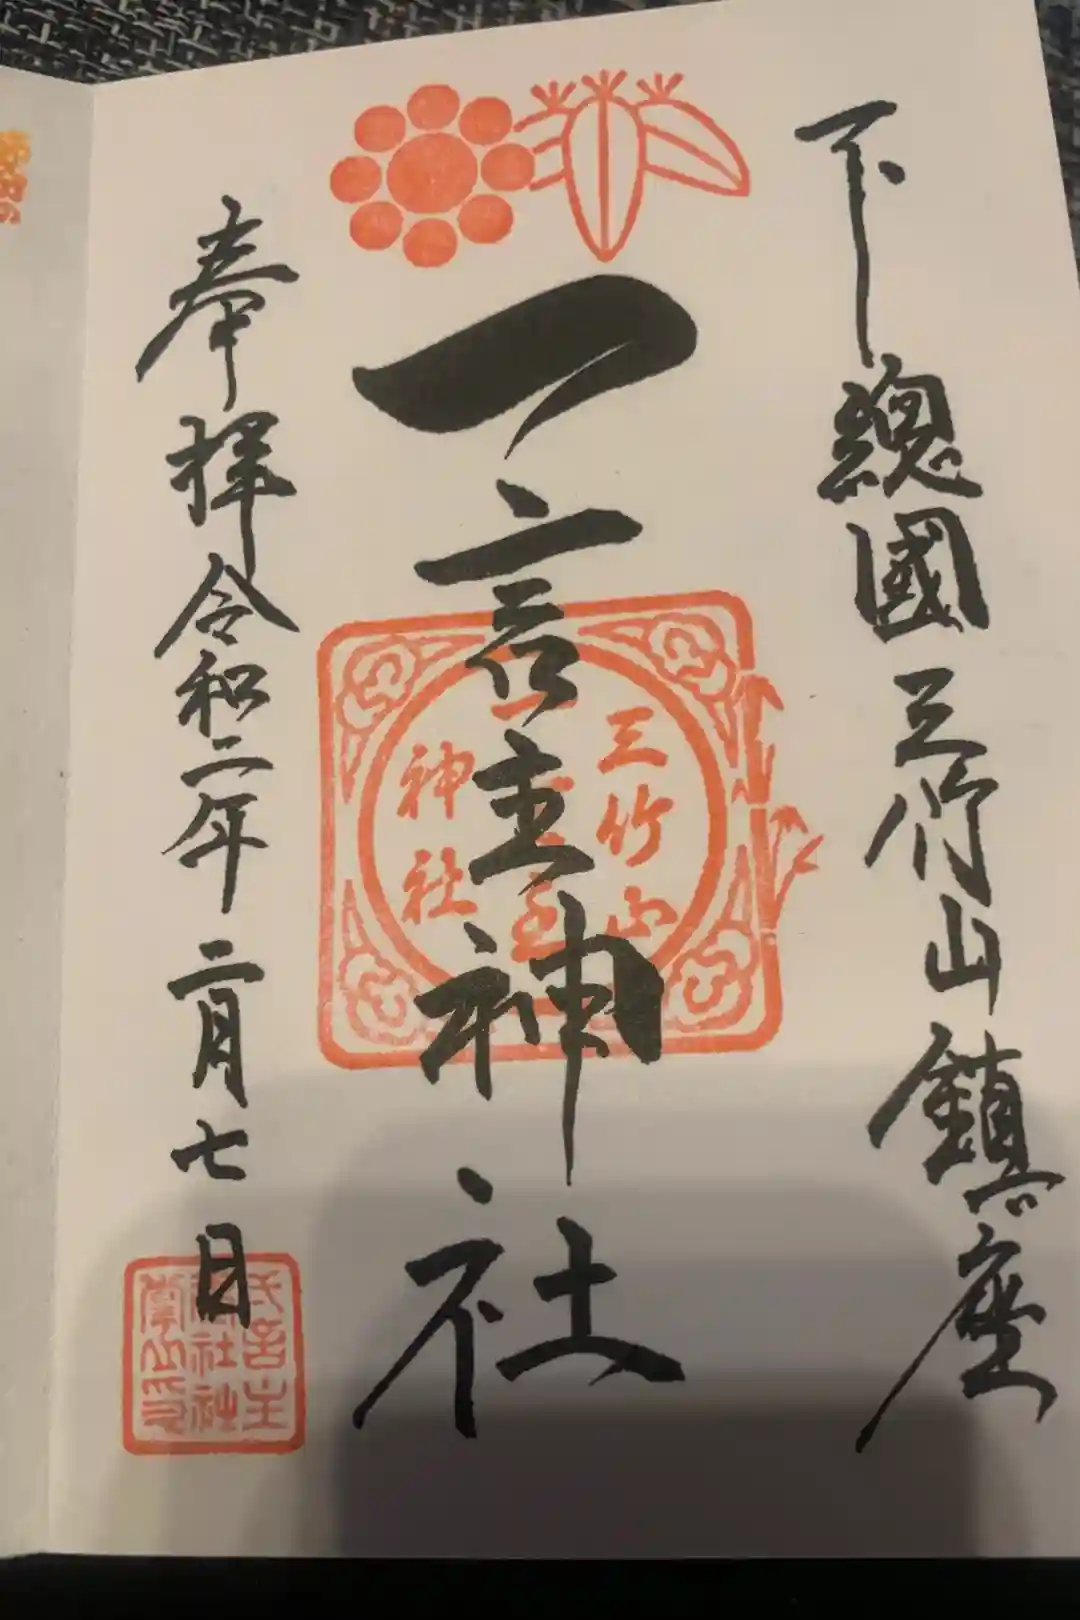 下總國三竹山鎮座
一言主神社
三竹山
神社
奉拝令和二年二月七日